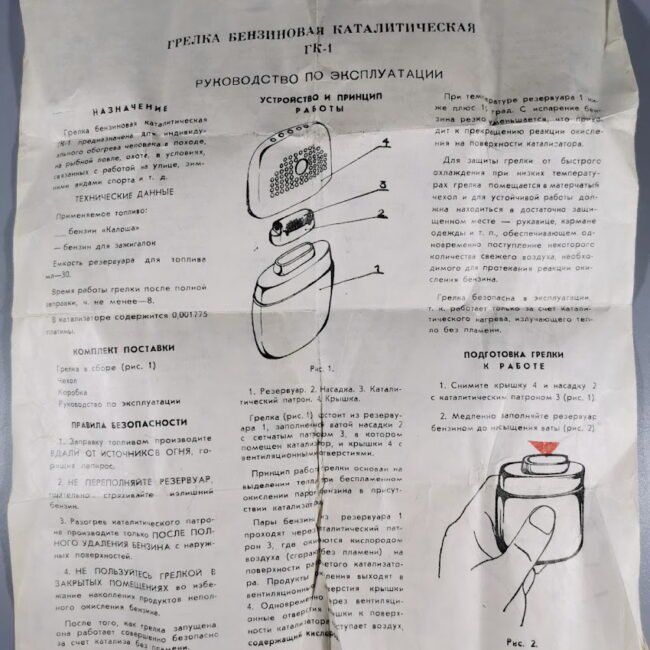 ГРЕЛКА БЕНЗИНОВАЯ КАТАЛИТИЧЕСКАЯ
ГК-1
РУКОВОДСТВО ПО ЭКСПЛУАТАЦИИ
НАЗНАЧЕНИЕ
Грелка бензиновая каталитическая
ГК-1 предназначена для индивиду-
ального обогрева человека в походе,
на рыбной ловле, охоте, в условиях,
связанных с работой на улице, зим-
ними видами спорта и т. д.
ТЕХНИЧЕСКИЕ ДАННЫЕ
Применяемое топливо:
— бензин «Калоша»
— бензин для зажигалок
Емкость резервуара для топлива
мл—30.
Время работы грелки после полной
заправки, ч. не менее—8.
В катализаторе содержится 0,001775
платины.
КОМПЛЕКТ ПОСТАВКИ
Грелка в сборе (рис. 1)
Чехол
Коробка
Руководство по эксплуатации
ПРАВИЛА БЕЗОПАСНОСТИ
1. Заправку топливом производите
ВДАЛИ ОТ ИСТОЧНИКОВ ОГНЯ, го-
рящих папирос.
2. НЕ ПЕРЕПОЛНЯЙТЕ РЕЗЕРВУАР,
тщательно стряхивайте излишний
бензин.
3. Разогрев каталитического патро-
на производите только ПОСЛЕ ПОЛ-
НОГО УДАЛЕНИЯ БЕНЗИНА с наруж-
ных поверхностей.
4. НЕ ПОЛЬЗУЙТЕСЬ ГРЕЛКОЙ В
ЗАКРЫТЫХ ПОМЕЩЕНИЯХ во избе-
жание накопления продуктов непол-
ного окисления бензина.
После того, как грелка запущена
она работает совершенно безопасно
за счет катализа без пламени.
УСТРОЙСТВО И ПРИНЦИП
РАБОТЫ
4
3
2
1
Рис. 1.
1. Резервуар. 2. Насадка. 3. Катали-
тический патрон. 4. Крышка.
Грелка (рис. 1) состоит из резерву-
ара 1, заполненного ватой насадки 2
с сетчатым патроном 3, в котором
помещен катализатор, и крышки 4 с
вентиляционными отверстиями.
Принцип работы грелки основан на
выделении тепла при беспламенном
окислении паров бензина в присут-
ствии катализатора.
Пары бензина из резервуара 1
проходят через каталитический пат-
рон 3, где окисляются кислородом
воздуха (сгорают без пламени) на
поверхности разогретого катализато-
ра. Продукты окисления выходят в
вентиляционные отверстия крышки
4. Одновременно через вентиляци-
онные отверстия крышки к поверх-
ности катализатора поступает воздух,
содержащий кислород
При температуре резервуара 1 ни-
же плюс град. С испарение бен-
зина резко уменьшается, что приво-
дит к прекращению реакции окисле-
ния на поверхности катализатора.
Для защиты грелки от быстрого
охлаждения при низких температу-
рах грелка помещается в матерчатый
чехол и для устойчивой работы дол-
жна находиться в достаточно защи-
щенном месте — рукавице, кармане
одежды и т. п., обеспечивающем од-
новременно поступление некоторого
количества свежего воздуха, необхо-
димого для протекания реакции оки-
сления бензина.
Грелка безопасна в эксплуатации,
т. к. работает только за счет катали-
тического нагрева, излучающего теп-
ло без пламени.
ПОДГОТОВКА ГРЕЛКИ
К РАБОТЕ
1. Снимите крышку 4 и насадку 2
с каталитическим патроном 3 (рис. 1).
2. Медленно заполняйте резервуар
бензином до насыщения ваты (рис. 2)
Рис. 2.